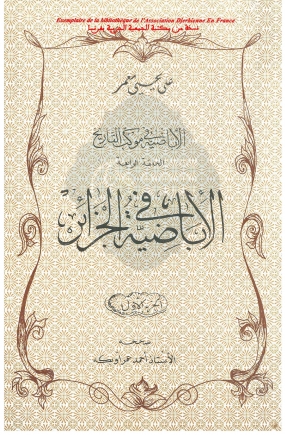 Exemplaire de la bibliothèque de l'Association Djerbienne En France
نسخة من مكتبة الجمعية الجربية بفرنسا
علي يحيى معمر
الإباضية في موكب التاريخ
الحلقة الرابعة
الإباضية في الجزائر
الجزء الأول
صححه
الأستاذ أحمد عمر أوبكه